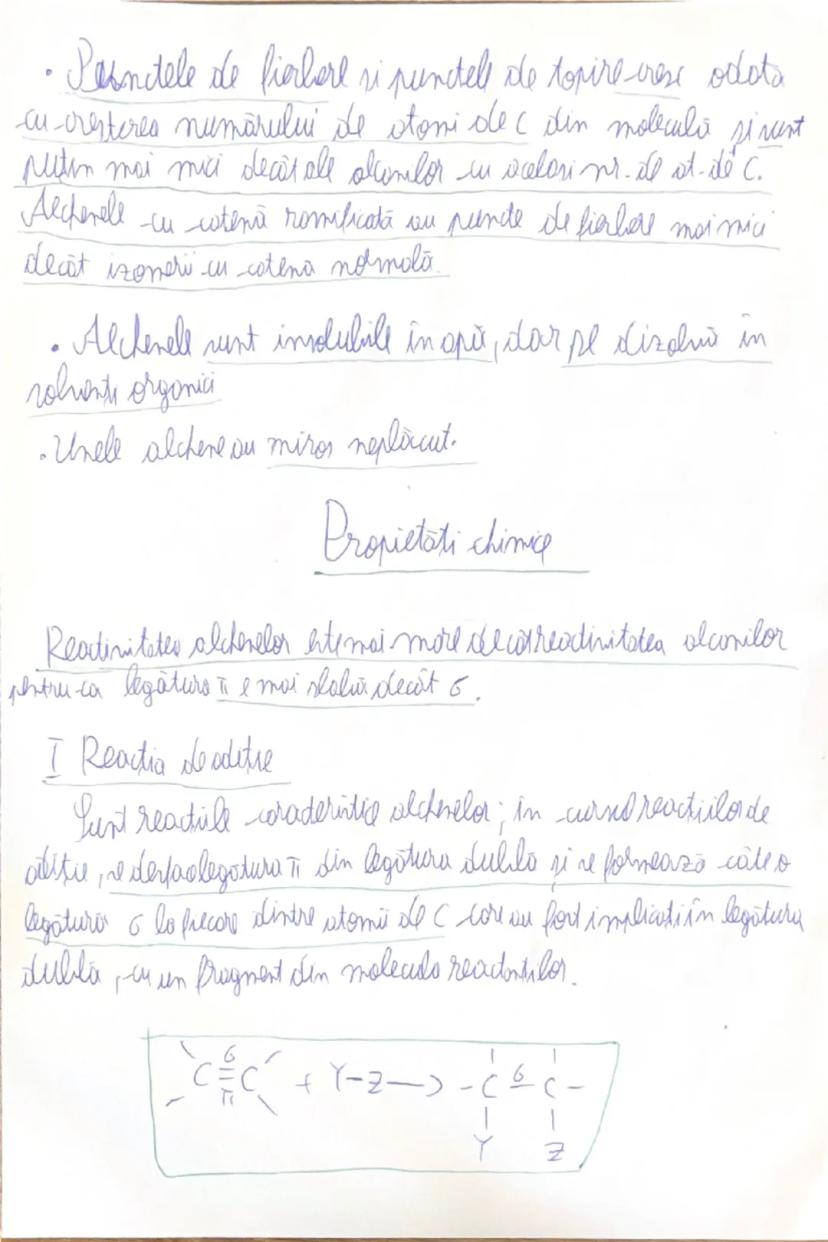 • Punctele de fierbere si punctele de topire cresc odata
cu cresterea numărului de atomi de C din moleculă și sunt
putin mai mici decât ale alcanilor cu acelasi nr. de at. de C.
Alchenele cu catenă ramificată au puncte de fierbere mai mici
decât izomerii cu catenă normală.
• Alchenele sunt insolubile în apă, dar se dizolvă în
solventi organici
• Unele alchene au miros neplăcut.
Propietăti chimice
Reactivitatea alchenelor este mai mare decât reactivitatea alcanilor
pentru ca legătura π e mai slabă decât σ.
I Reactia de aditie
Sunt reactiile caracteristice alchenelor; în cursul reactiilor de
aditie, se desface legătura π din legătura dublă si se formează câte o
legătură σ la fiecare dintre atomii de C care au fost implicati în legătura
dublă, cu un fragment din molecula reactantilor.
σ
C = C + Y-Z → - C σ C -
π
Y Z